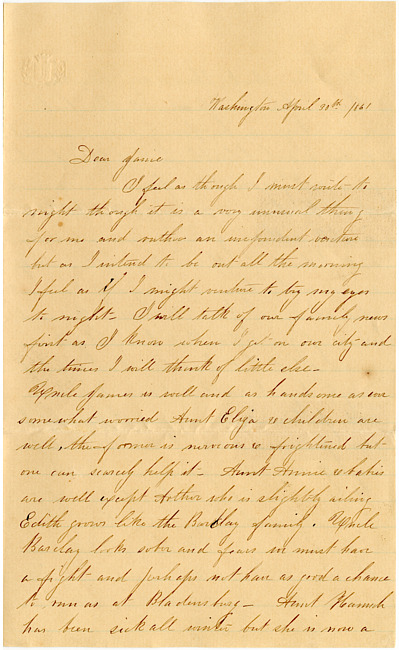 Washington April 20th /861
Dear Jamie
I feel as though I must write to
night though it is a very unusual thing
for me and rather an independent venture
but as I intend to be out all the morning
I feel as if I might venture to try my eyes
to night - I will talk of our family news
first as I know when I get on our city and
the times I will think of little else -
Uncle James is well and as handsome as ever
somewhat worried Aunt Eliza & children are
well, the former is nervous & frightened but
one can scarcely help it - Aunt Annie & babies
are well except she is slightly ailing
Edith grows like the Barclay family. Uncle
Barclay looks sober and fears we must have
a fight and perhaps not have as good a chance
to run as at Bladensburg - Aunt Hannah
has been sick all winter but she is now a